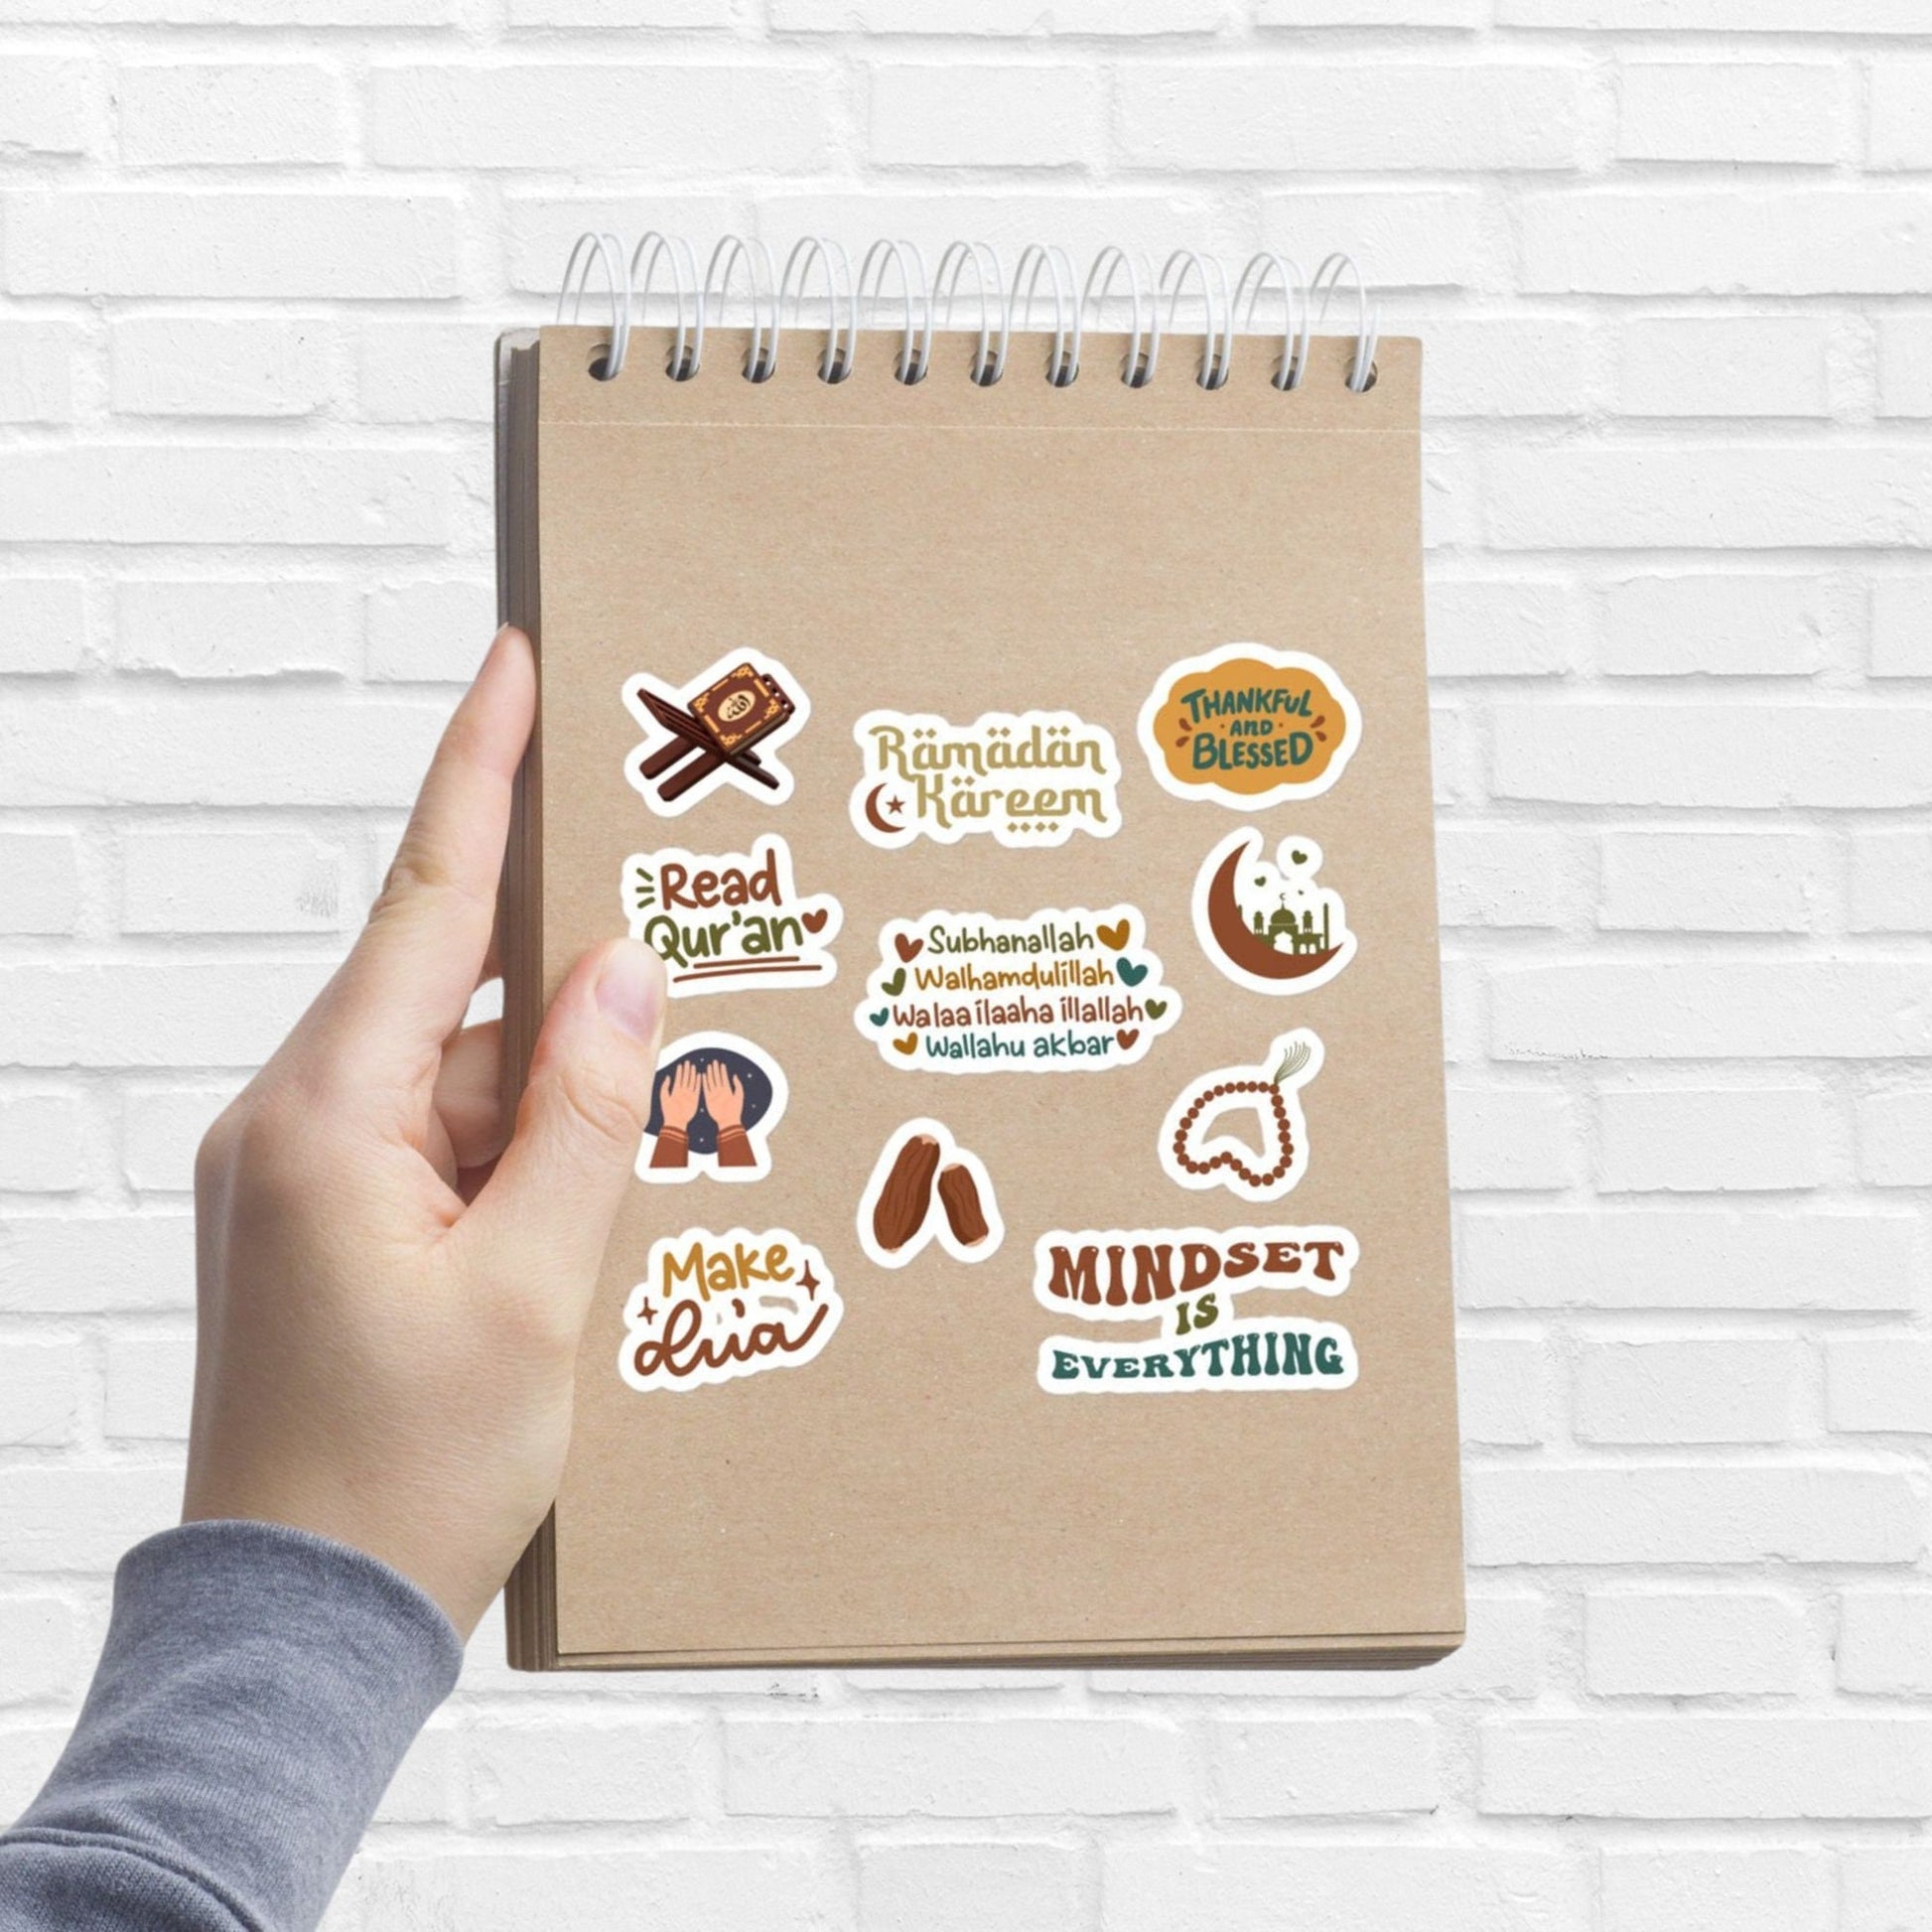 الله
Ramadan
Kareem
THANKFUL
AND
BLESSED
Read
Qur'an
Subhanallah
Walhamdulillah
Walaa ilaaha illallah
Wallahu akbar
Make
du'a
MINDSET
IS
EVERYTHING